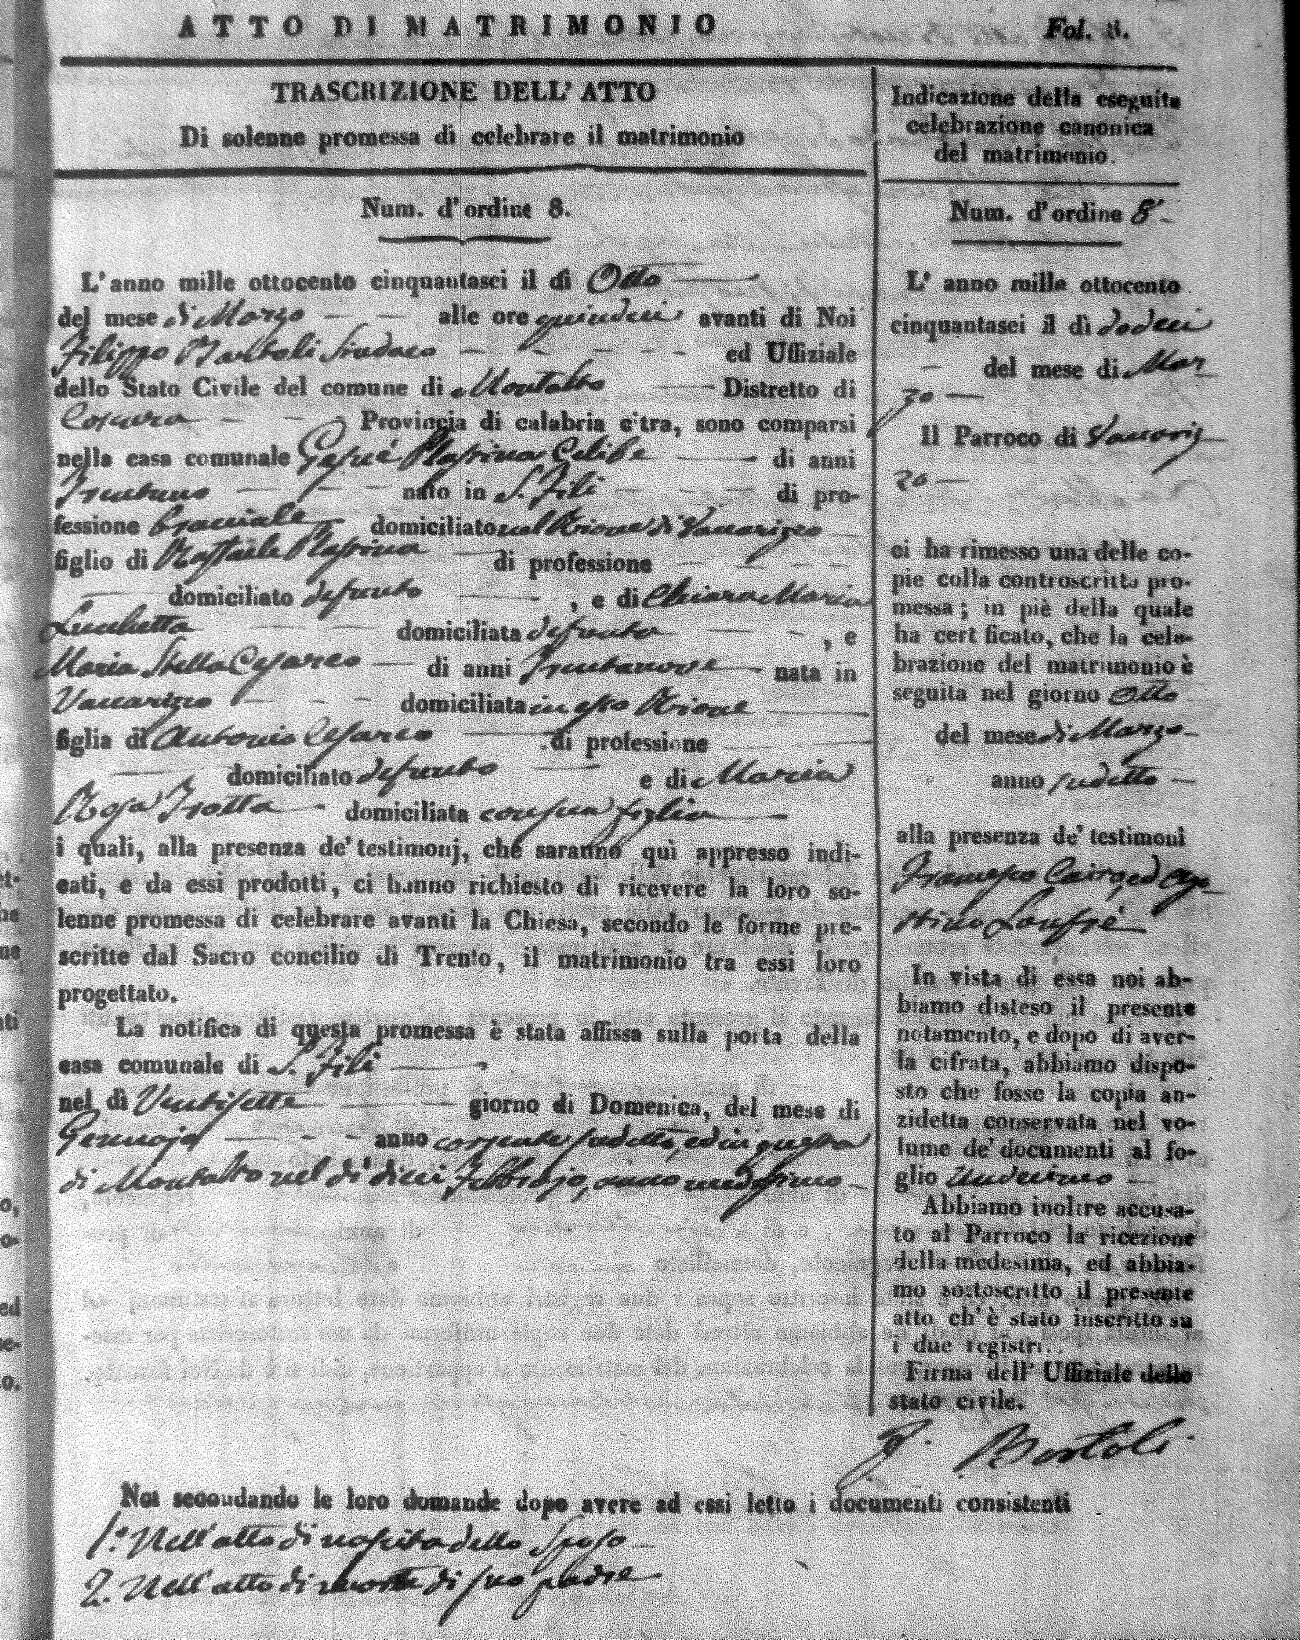 ATTO DI MATRIMONIO
Fol. 8.
TRASCRIZIONE DELL' ATTO
Di solenne promessa di celebrare il matrimonio
Num. d'ordine 8.
L'anno mille ottocento cinquantasei il dì Otto
del mese di Marzo alle ore quindici avanti di Noi
Filippo Bartoli Sindaco ed Uffiziale
dello Stato Civile del comune di Montalto Distretto di
Cosenza Provincia di calabria citra, sono comparsi
nella casa comunale Gesuè Massina Celibe di anni
Trentuno nato in S. Fili di pro-
fessione bracciale domiciliato nel Rione di Vaccarizzo
figlio di Raffaele Massina di professione
domiciliato defunto , e di Chiara Maria
Lucchetta domiciliata defunta , e
Maria Stella Cesareo di anni Trentanove nata in
Vaccarizzo domiciliata in esso Rione
figlia di Antonio Cesareo di professione
domiciliato defunto e di Maria
Rosa Trotta domiciliata con sua figlia
i quali, alla presenza de' testimonj, che saranno quì appresso indi-
cati, e da essi prodotti, ci hanno richiesto di ricevere la loro so-
lenne promessa di celebrare avanti la Chiesa, secondo le forme pre-
scritte dal Sacro concilio di Trento, il matrimonio tra essi loro
progettato.
La notifica di questa promessa è stata affissa sulla porta della
casa comunale di S. Fili
nel dì Ventisette giorno di Domenica, del mese di
Gennajo anno corrente sudetto, ed in questa
di Montalto nel dì dieci Febbrajo, anno medesimo
Indicazione della eseguita
celebrazione canonica
del matrimonio.
Num. d'ordine 8
L' anno mille ottocento
cinquantasei il dì dodeci
del mese di Mar
zo
Il Parroco di Vaccariz
zo
ci ha rimesso una delle co-
pie colla controscritta pro-
messa; in piè della quale
ha certificato, che la cele-
brazione del matrimonio è
seguita nel giorno Otto
del mese di Marzo
anno sudetto
alla presenza de' testimoni
Francesco Cairo, ed Ago
stino
In vista di essa noi ab-
biamo disteso il presente
notamento, e dopo di aver-
la cifrata, abbiamo dispo-
sto che fosse la copia an-
zidetta conservata nel vo-
lume de' documenti al fo-
glio Undecimo
Abbiamo inoltre accusa-
to al Parroco la ricezione
della medesima, ed abbia-
mo sottoscritto il presente
atto ch' è stato inscritto su
i due registri.
Firma dell' Uffiziale dello
stato civile.
F. Bartoli
Noi secondando le loro domande dopo avere ad essi letto i documenti consistenti
1.° Nell'atto di nascita dello Sposo
2. Nell'atto di morte di suo padre